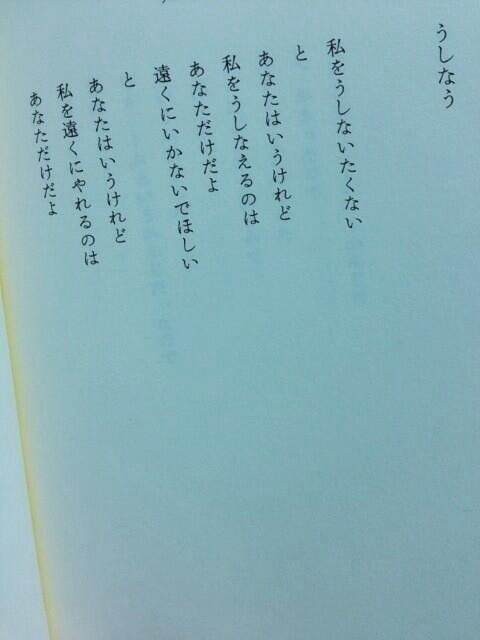 うしなう
私をうしないたくない
と
あなたはいうけれど
私をうしなえるのは
あなただけだよ
遠くにいかないでほしい
と
あなたはいうけれど
私を遠くにやれるのは
あなただけだよ